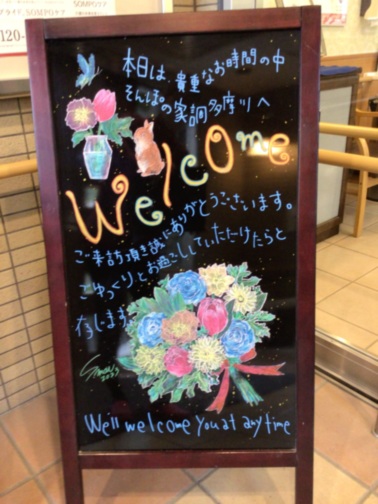 SOMPOケア
120-
本日は、貴重なお時間の中
そんぽの家調多摩川へ
Welcome
ご来訪頂き誠にありがとうございます。
ごゆっくりとお過ごししていただけたらと
存じます。
We'll welcome you at anytime